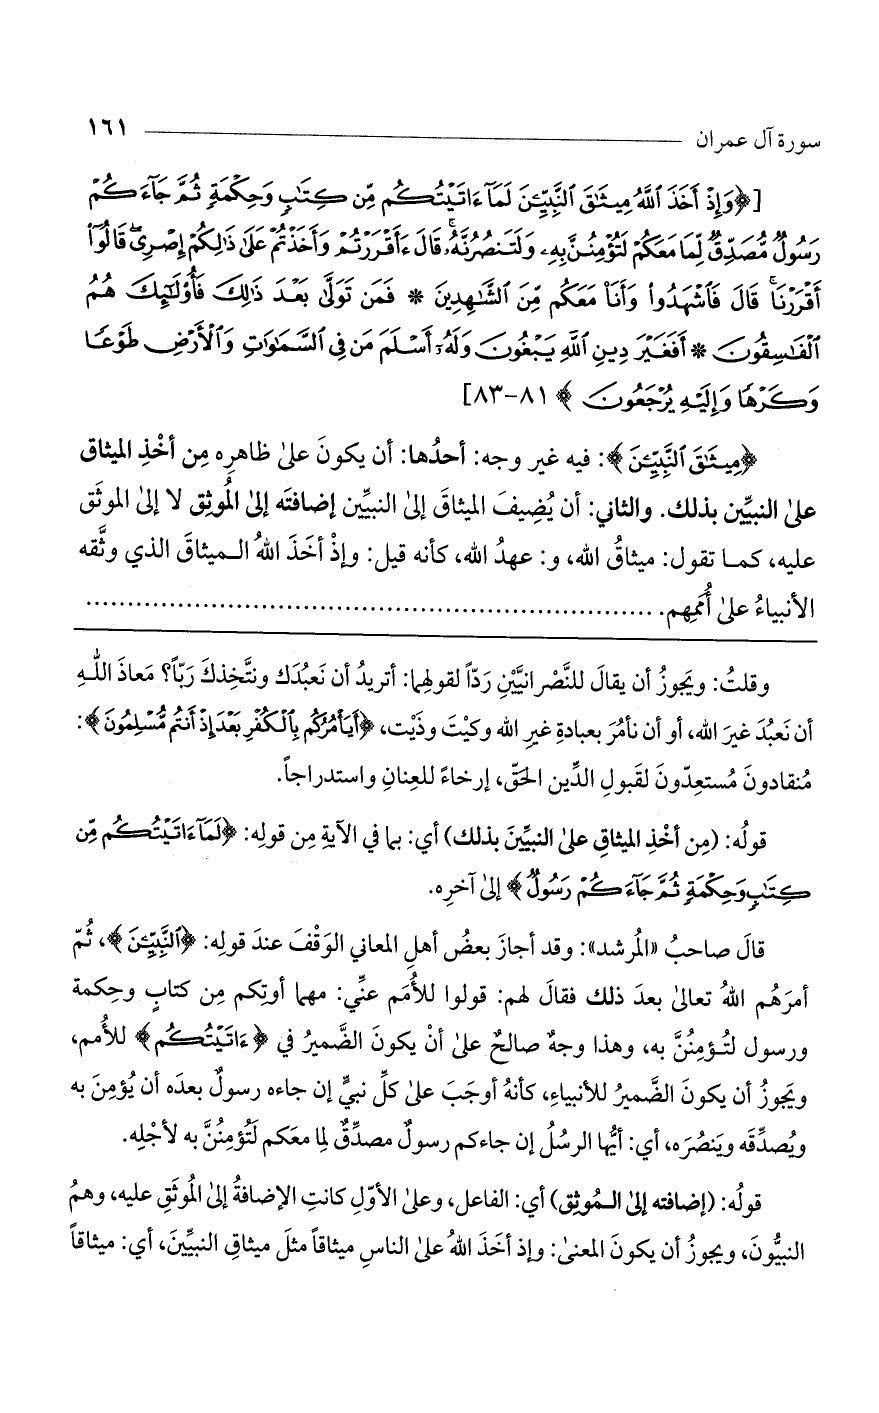 سورة آل عمران ١٦١
[﴿وَإِذْ أَخَذَ ٱللَّهُ مِيثَٰقَ ٱلنَّبِيِّـۧنَ لَمَآ ءَاتَيْتُكُم مِّن كِتَٰبٍ وَحِكْمَةٍ ثُمَّ جَآءَكُمْ
رَسُولٌ مُّصَدِّقٌ لِّمَا مَعَكُمْ لَتُؤْمِنُنَّ بِهِۦ وَلَتَنصُرُنَّهُۥ ۚ قَالَ ءَأَقْرَرْتُمْ وَأَخَذْتُمْ عَلَىٰ ذَٰلِكُمْ إِصْرِى ۖ قَالُوٓا۟
أَقْرَرْنَا ۚ قَالَ فَٱشْهَدُوا۟ وَأَنَا۠ مَعَكُم مِّنَ ٱلشَّٰهِدِينَ * فَمَن تَوَلَّىٰ بَعْدَ ذَٰلِكَ فَأُو۟لَٰٓئِكَ هُمُ
ٱلْفَٰسِقُونَ * أَفَغَيْرَ دِينِ ٱللَّهِ يَبْغُونَ وَلَهُۥٓ أَسْلَمَ مَن فِى ٱلسَّمَٰوَٰتِ وَٱلْأَرْضِ طَوْعًا
وَكَرْهًا وَإِلَيْهِ يُرْجَعُونَ﴾ ٨١-٨٣]
﴿مِيثَٰقَ ٱلنَّبِيِّـۧنَ﴾: فيه غير وجه: أحدُها: أن يكونَ علىٰ ظاهرِه مِن أخْذِ الميثاق
علىٰ النبيِّين بذلك. والثاني: أن يُضِيفَ الميثاقَ إلىٰ النبيِّين إضافتَه إلىٰ المُوثِق لا إلىٰ الموثَق
عليه، كما تقول: ميثاقُ الله، و: عهدُ الله، كأنه قيل: وإذْ أخَذَ اللهُ الميثاقَ الذي وثَّقه
الأنبياءُ علىٰ أُمَمِهم. ....................................................................
وقلتُ: ويجوزُ أن يقالَ للنَّصْرانيَّيْنِ ردّاً لقولهِما: أتريدُ أن نَعبُدَك ونتَّخِذكَ رَبّاً؟ مَعاذَ اللهِ
أن نَعبُدَ غيرَ الله، أو أن نأمُرَ بعبادةِ غيرِ الله وكيْتَ وذَيْت، ﴿أَيَأْمُرُكُم بِٱلْكُفْرِ بَعْدَ إِذْ أَنتُم مُّسْلِمُونَ﴾:
مُنقادونَ مُستعِدّونَ لقَبولِ الدِّين الحَقّ، إرخاءً للعِنانِ واستدراجاً.
قولُه: (مِن أخْذِ الميثاقِ علىٰ النبيِّينَ بذلك) أي: بما في الآيةِ مِن قولِه: ﴿لَمَآ ءَاتَيْتُكُم مِّن
كِتَٰبٍ وَحِكْمَةٍ ثُمَّ جَآءَكُمْ رَسُولٌ﴾ إلىٰ آخرِه.
قالَ صاحبُ «المُرشد»: وقد أجازَ بعضُ أهلِ المعاني الوَقْفَ عندَ قولِه: ﴿ٱلنَّبِيِّـۧنَ﴾، ثُمّ
أمرَهُم اللهُ تعالىٰ بعدَ ذلك فقالَ لهم: قولوا للأُمَم عنِّي: مهما أوتِكم مِن كتابٍ وحِكمة
ورسول لتُؤمِنُنَّ به، وهذا وجهٌ صالحٌ علىٰ أنْ يكونَ الضَّميرُ في ﴿ءَاتَيْتُكُم﴾ للأمم،
ويَجوزُ أن يكونَ الضَّميرُ للأنبياءِ، كأنهُ أوجَبَ علىٰ كلِّ نبيٍّ إن جاءه رسولٌ بعدَه أن يُؤمِنَ به
ويُصدِّقَه ويَنصُرَه، أي: أيُّها الرسُلُ إن جاءكم رسولٌ مصدِّقٌ لما معَكم لَتُؤمِنُنَّ به لأجْلِه.
قولُه: (إضافته إلىٰ المُوثِق) أي: الفاعل، وعلىٰ الأوّلِ كانتِ الإضافةُ إلىٰ المُوثَقِ عليه، وهمُ
النبيُّونَ، ويجوزُ أن يكونَ المعنىٰ: وإذ أخَذَ اللهُ علىٰ الناسِ ميثاقاً مثلَ ميثاقِ النبيِّينَ، أي: ميثاقاً